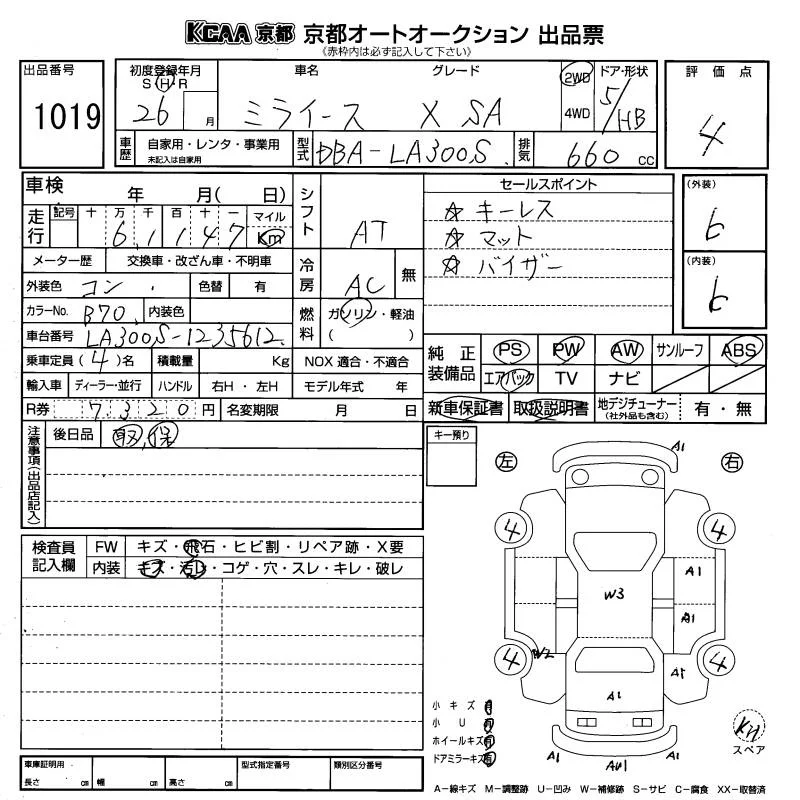 KCAA 京都 京都オートオークション 出品票
(赤枠内は必ず記入して下さい)
出品番号 1019
初度登録年月 S H R 26 月
車名 ミライース
グレード X SA
2WD 4WD
ドア・形状 5/HB
評価点 4
車歴 自家用・レンタ・事業用 未記入は自家用
型式 DBA-LA300S
排気 660 cc
車検 年 月( 日)
シフト AT
セールスポイント
☆ キーレス
☆ マット
☆ バイザー
(外装) 6
(内装) 6
走行 記号 十 万 千 百 十 一 マイル Km
6 1 1 4 7
メーター歴 交換車・改ざん車・不明車
冷房 AC 無
外装色 コン 色替 有
カラーNo. B70 内装色
燃料 ガソリン・軽油 ( )
車台番号 LA300S-1235612
乗車定員 (4)名 積載量 Kg NOX 適合・不適合
輸入車 ディーラー・並行 ハンドル 右H・左H モデル年式 年
R券 7320円 名変期限 月 日
純正装備品 PS PW AW サンルーフ ABS
エアバック TV ナビ
新車保証書 取扱説明書 地デジチューナー (社外品も含む) 有・無
注意事項(出品店記入)
後日品 取 保
キー預り
左 右
検査員記入欄 FW キズ・飛石・ヒビ割・リペア跡・X要
内装 キズ・汚レ・コゲ・穴・スレ・キレ・破レ
A1
4 4
A1
W3
A1
W2
4 4
A1
A1
小キズ 有
小U 有
ホイールキズ 有
ドアミラーキズ 有
A1 AU1 A1
スペア
車庫証明用 長さ cm 幅 cm 高さ cm
型式指定番号 類別区分番号
A-線キズ M-調整跡 U-凹み W-補修跡 S-サビ C-腐食 XX-取替済